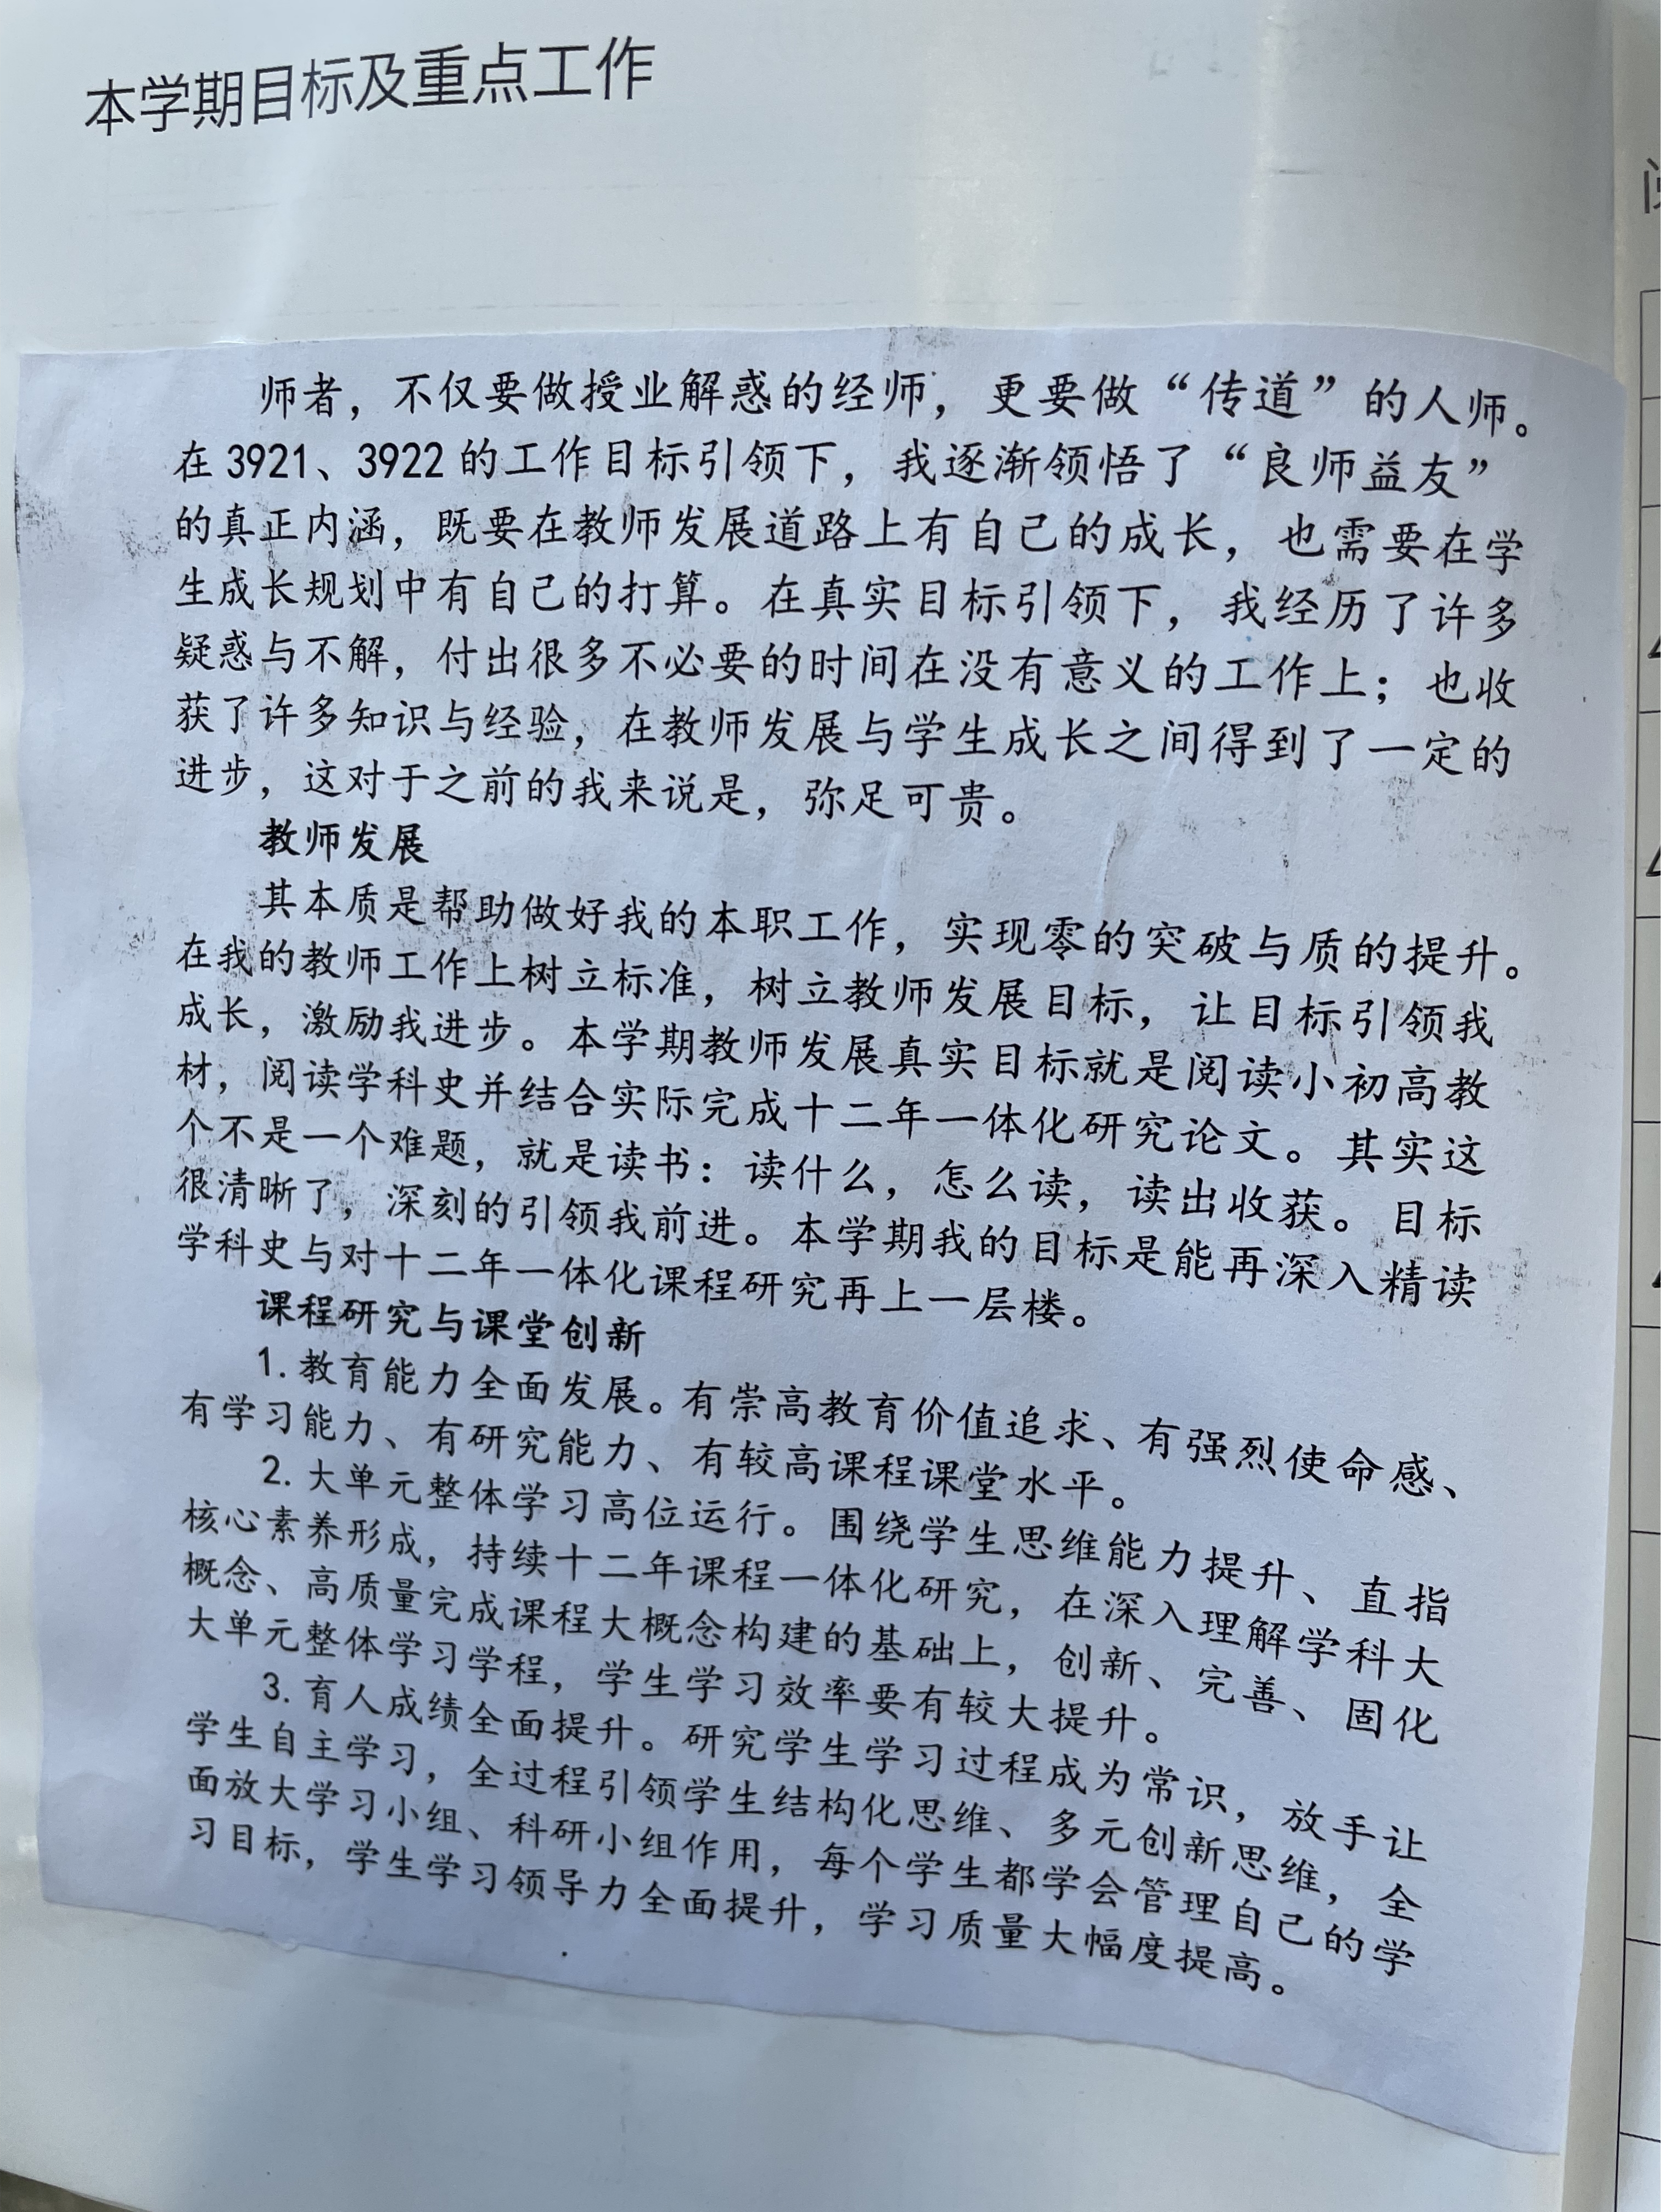 本学期目标及重点工作
师者，不仅要做授业解惑的经师，更要做“传道”的人师。
在3921、3922的工作目标引领下，我逐渐领悟了“良师益友”
的真正内涵，既要在教师发展道路上有自己的成长，也需要在学
生成长规划中有自己的打算。在真实目标引领下，我经历了许多
疑惑与不解，付出很多不必要的时间在没有意义的工作上；也收
获了许多知识与经验，在教师发展与学生成长之间得到了一定的
进步，这对于之前的我来说是，弥足可贵。
教师发展
其本质是帮助做好我的本职工作，实现零的突破与质的提升。
在我的教师工作上树立标准，树立教师发展目标，让目标引领我
成长，激励我进步。本学期教师发展真实目标就是阅读小初高教
材，阅读学科史并结合实际完成十二年一体化研究论文。其实这
个不是一个难题，就是读书：读什么，怎么读，读出收获。目标
很清晰了，深刻的引领我前进。本学期我的目标是能再深入精读
学科史与对十二年一体化课程研究再上一层楼。
课程研究与课堂创新
1.教育能力全面发展。有崇高教育价值追求、有强烈使命感、
有学习能力、有研究能力、有较高课程课堂水平。
2.大单元整体学习高位运行。围绕学生思维能力提升、直指
核心素养形成，持续十二年课程一体化研究，在深入理解学科大
概念、高质量完成课程大概念构建的基础上，创新、完善、固化
大单元整体学习学程，学生学习效率要有较大提升。
3.育人成绩全面提升。研究学生学习过程成为常识，放手让
学生自主学习，全过程引领学生结构化思维、多元创新思维，全
面放大学习小组、科研小组作用，每个学生都学会管理自己的学
习目标，学生学习领导力全面提升，学习质量大幅度提高。